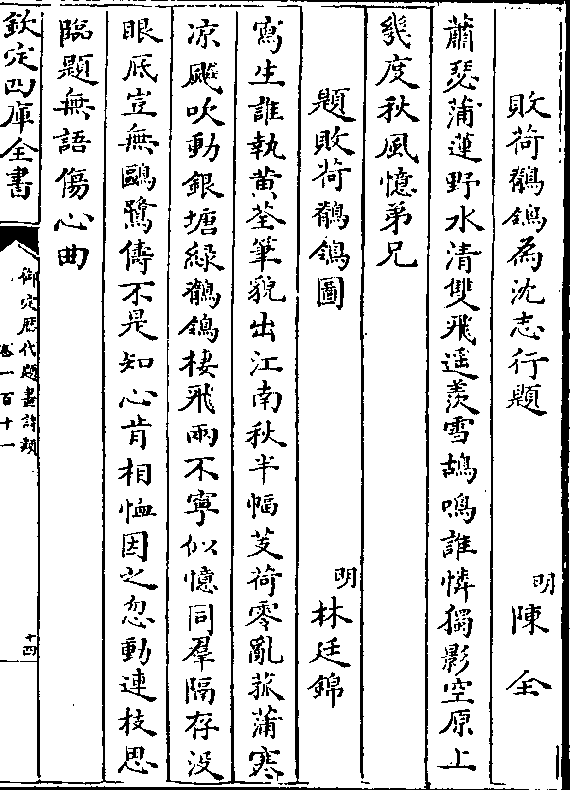 敗荷鶺鴒為沈志行題
明陳全
蕭瑟蒲蓮野水清雙飛遥羨雪鴣鳴誰憐獨影空原上
幾度秋風憶弟兄
題敗荷鶺鴒圖
明林廷錦
寫生誰執黄荃筆貌出江南秋半幅芰荷零亂菰蒲寒
凉飈吹動銀塘緑鶺鴒棲飛兩不寧似憶同羣隔存没
眼底豈無鷗鷺儔不是知心肯相恤因之忽動連枝思
臨題無語傷心曲
欽定四庫全書
御定歴代題畫詩類
卷一百十一
十四